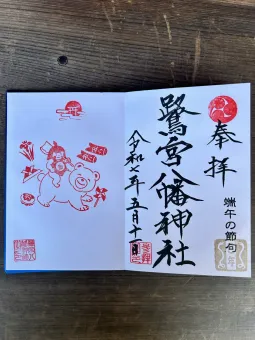 奉拝
端午の節句
鷺宮八幡神社
令和七年五月十一日